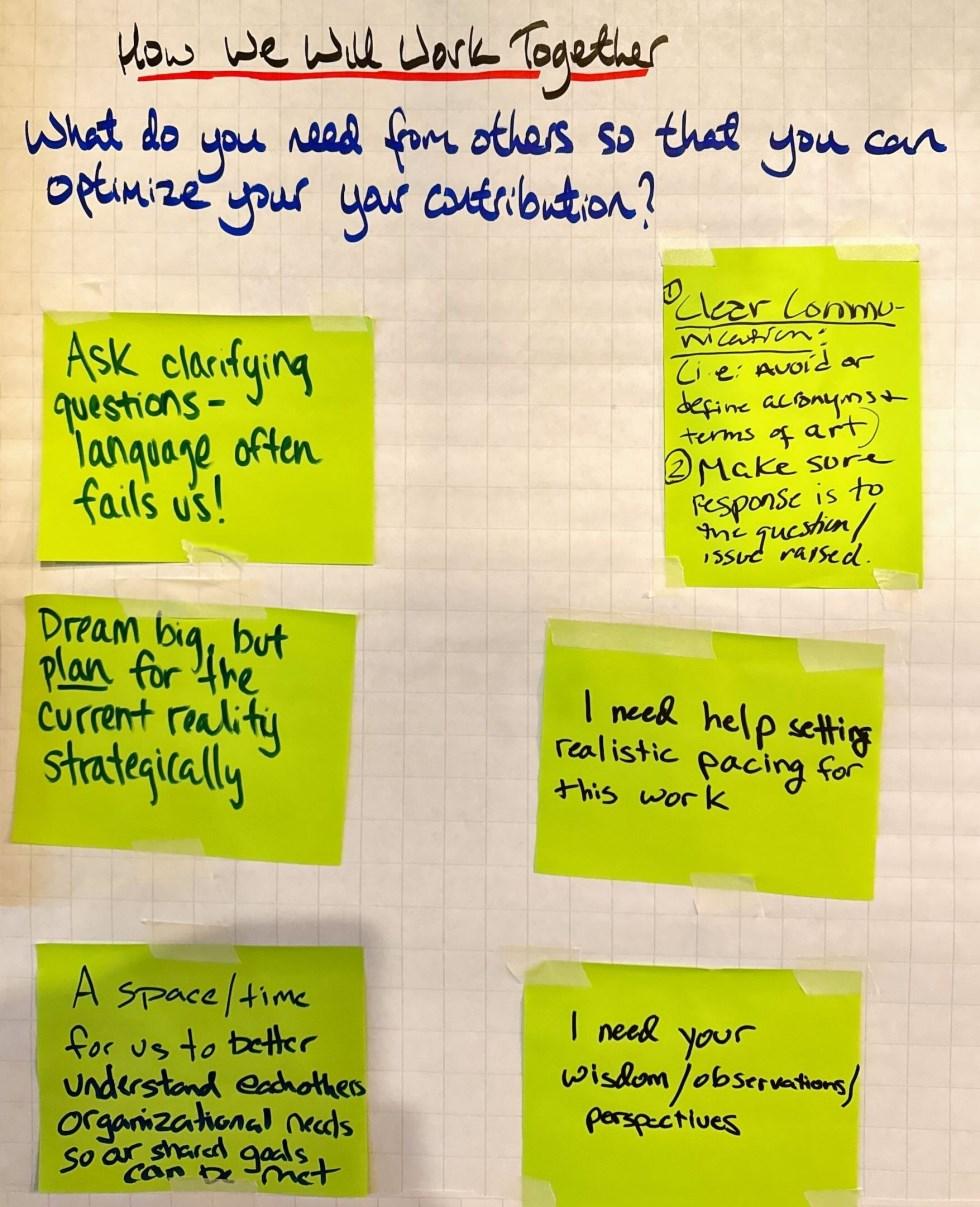 How We Will Work Together
What do you need from others so that you can
optimize your your contribution?
Ask clarifying
questions -
language often
fails us!
① Clear Commu-
nication:
(i.e: Avoid or
define acronyms +
terms of art)
② Make sure
response is to
the question/
issue raised.
Dream big, but
plan for the
current reality
strategically
I need help setting
realistic pacing for
this work
A space/time
for us to better
understand eachothers
organizational needs
so our shared goals
can be met
I need your
wisdom/observations/
perspectives